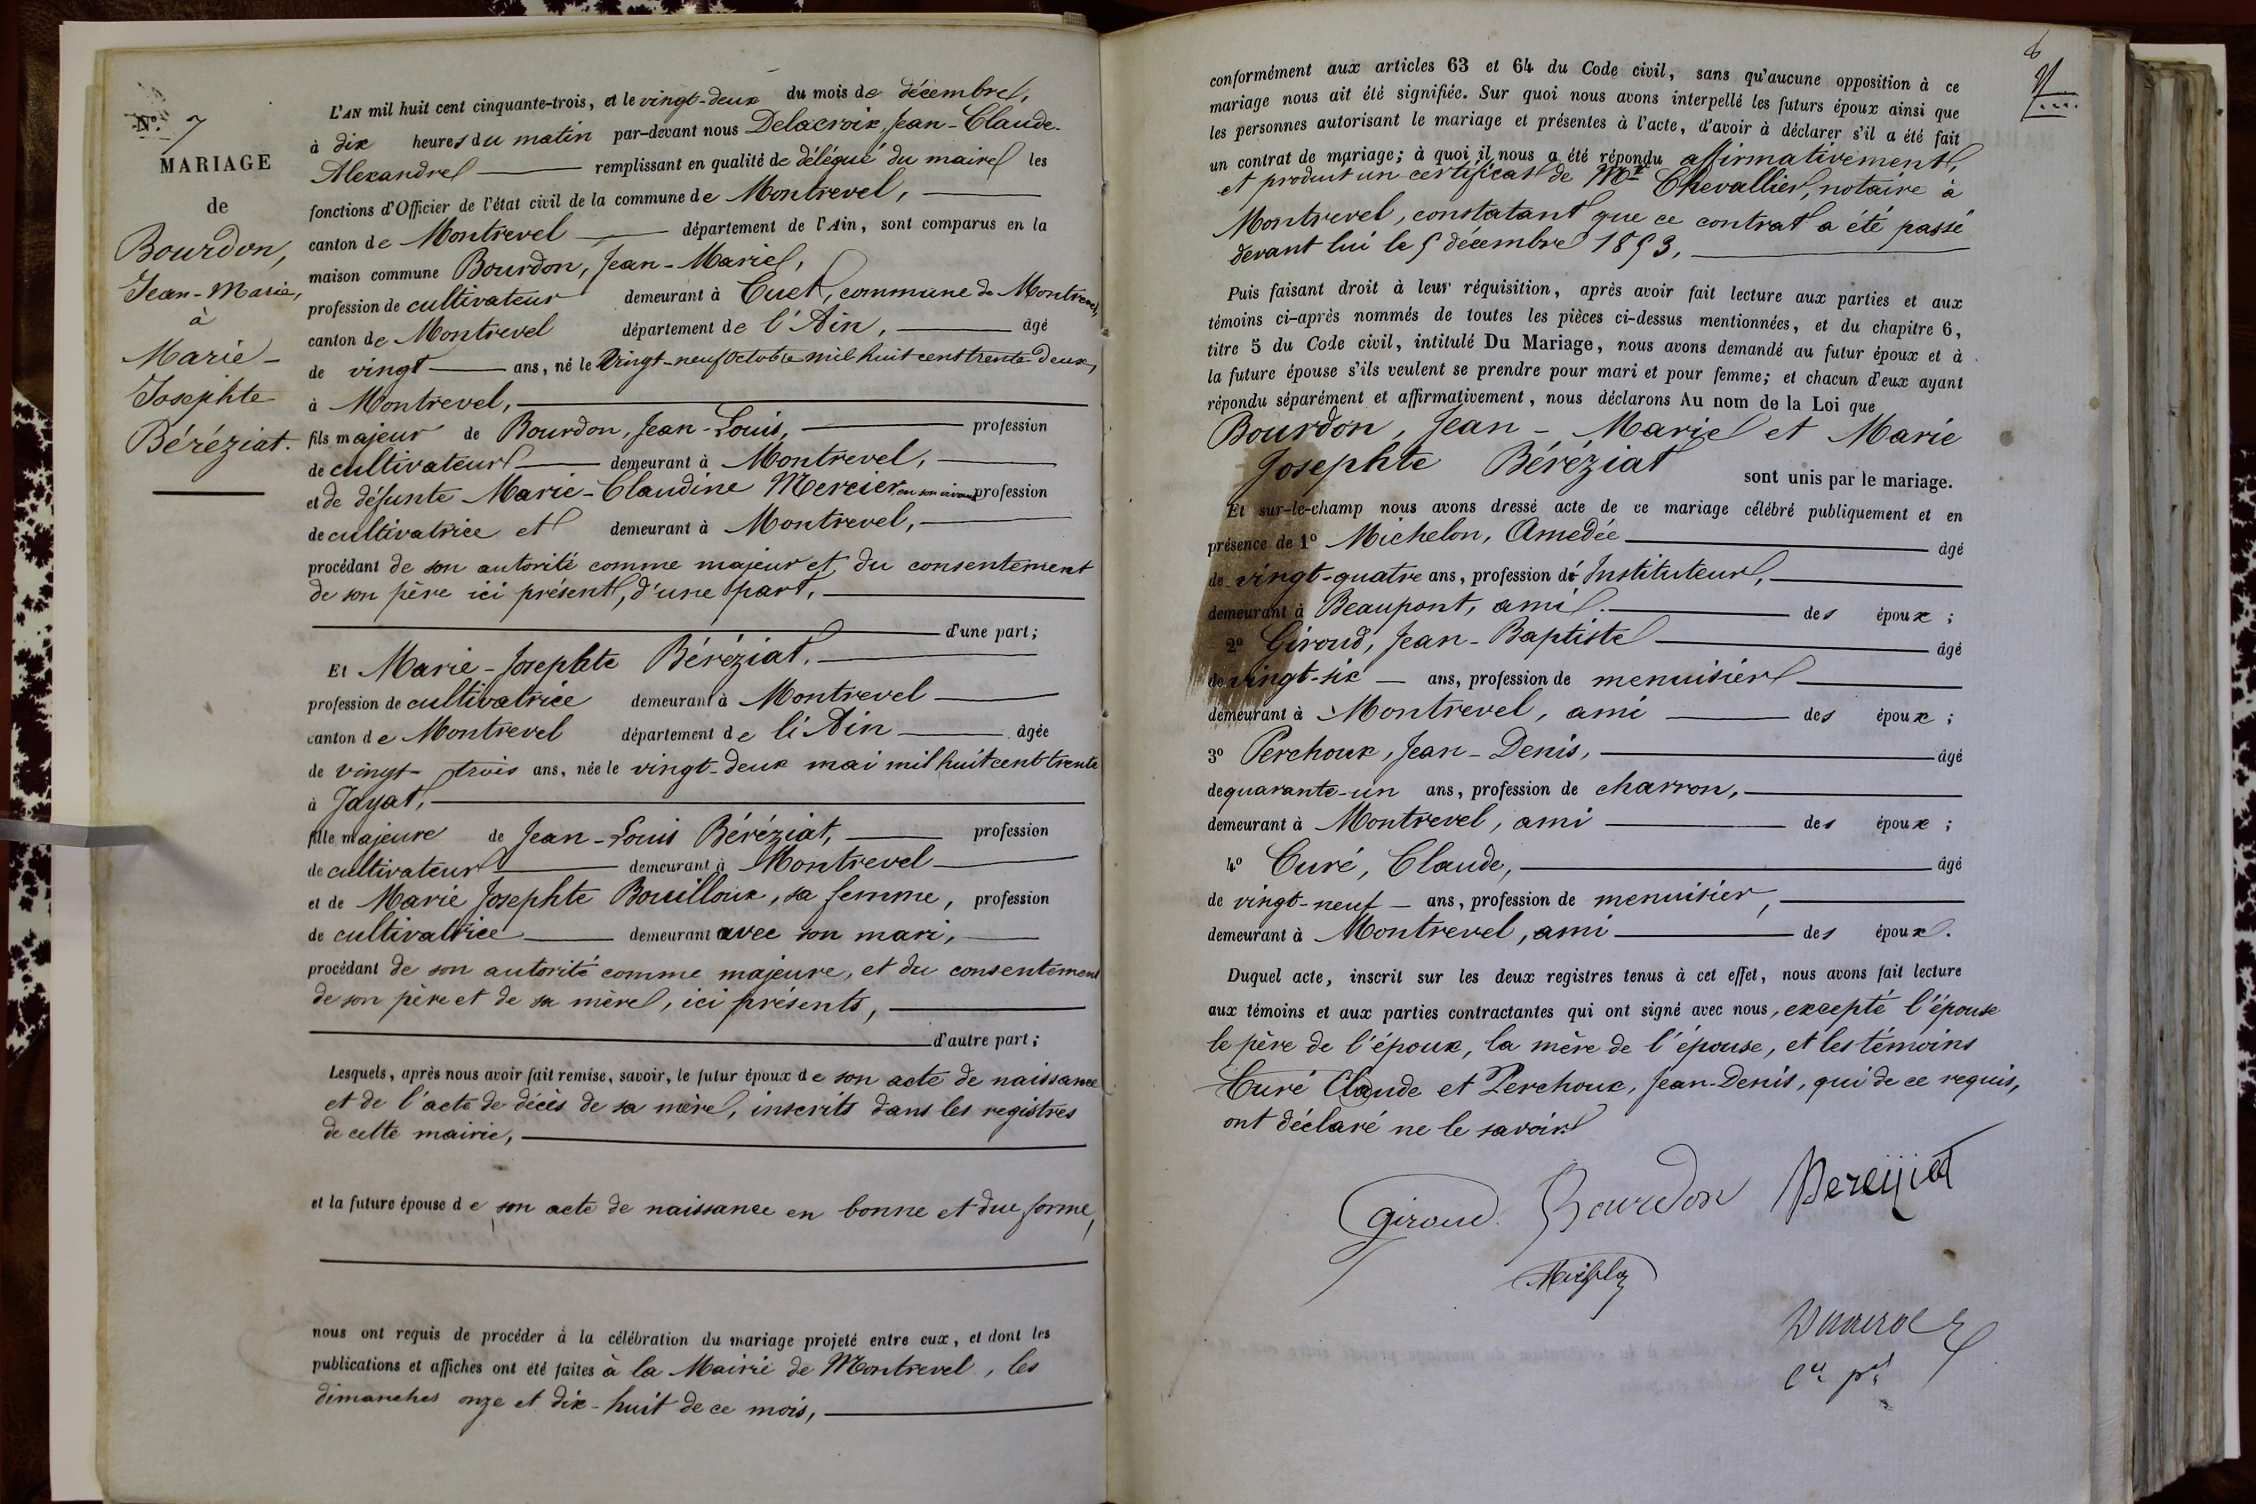 N.º 7
MARIAGE
de
Bourdon,
Jean-Marie,
à
Marie-
Josephte
Béréziat.
L'AN mil huit cent cinquante-trois, et le vingt-deux du mois de décembre,
à dix heures du matin par-devant nous Delacroix, Jean-Claude-
Alexandre remplissant en qualité de délégué du maire les
fonctions d'Officier de l'état civil de la commune de Montrevel,
canton de Montrevel département de l'Ain, sont comparus en la
maison commune Bourdon, Jean-Marie,
profession de cultivateur demeurant à Cuet, commune de Montrevel,
canton de Montrevel département de l'Ain, âgé
de vingt ans, né le vingt-neuf octobre mil huit cent trente-deux,
à Montrevel,
fils majeur de Bourdon, Jean-Louis, profession
de cultivateur demeurant à Montrevel,
et de défunte Marie-Claudine Mercier en son vivant profession
de cultivatrice et demeurant à Montrevel,
procédant de son autorité comme majeur et du consentement
de son père ici présent, d'une part,
d'une part;
Et Marie-Josephte Béréziat,
profession de cultivatrice demeurant à Montrevel
canton de Montrevel département de l'Ain âgée
de vingt-trois ans, née le vingt-deux mai mil huit cent trente
à Jayat,
fille majeure de Jean-Louis Béréziat, profession
de cultivateur demeurant à Montrevel
et de Marie Josephte Bouilloux, sa femme, profession
de cultivatrice demeurant avec son mari,
procédant de son autorité comme majeure, et du consentement
de son père et de sa mère, ici présents,
d'autre part;
Lesquels, après nous avoir fait remise, savoir, le futur époux de son acte de naissance
et de l'acte de décès de sa mère, inscrits dans les registres
de cette mairie,
et la future épouse de son acte de naissance en bonne et due forme,
nous ont requis de procéder à la célébration du mariage projeté entre eux, et dont les
publications et affiches ont été faites à la Mairie de Montrevel, les
dimanches onze et dix-huit de ce mois,
conformément aux articles 63 et 64 du Code civil, sans qu'aucune opposition à ce
mariage nous ait été signifiée. Sur quoi nous avons interpellé les futurs époux ainsi que
les personnes autorisant le mariage et présentes à l'acte, d'avoir à déclarer s'il a été fait
un contrat de mariage; à quoi il nous a été répondu affirmativement,
et produit un certificat de Me Chevallier, notaire à
Montrevel, constatant que ce contrat a été passé
devant lui le 5 décembre 1853.
Puis faisant droit à leur réquisition, après avoir fait lecture aux parties et aux
témoins ci-après nommés de toutes les pièces ci-dessus mentionnées, et du chapitre 6,
titre 5 du Code civil, intitulé Du Mariage, nous avons demandé au futur époux et à
la future épouse s'ils veulent se prendre pour mari et pour femme; et chacun d'eux ayant
répondu séparément et affirmativement, nous déclarons Au nom de la Loi que
Bourdon, Jean-Marie et Marie
Josephte Béréziat sont unis par le mariage.
Et sur-le-champ nous avons dressé acte de ce mariage célébré publiquement et en
présence de 1º Michelon, Amedée âgé
de vingt-quatre ans, profession d'Instituteur,
demeurant à Beaupont, ami des époux;
2º Giroud, Jean-Baptiste âgé
de vingt-six ans, profession de menuisier
demeurant à Montrevel, ami des époux;
3º Perchoux, Jean-Denis, âgé
de quarante-un ans, profession de charron,
demeurant à Montrevel, ami des époux;
4º Curé, Claude, âgé
de vingt-neuf ans, profession de menuisier,
demeurant à Montrevel, ami des époux.
Duquel acte, inscrit sur les deux registres tenus à cet effet, nous avons fait lecture
aux témoins et aux parties contractantes qui ont signé avec nous, excepté l'épouse
le père de l'époux, la mère de l'épouse, et les témoins
Curé Claude et Perchoux, Jean-Denis, qui de ce requis,
ont déclaré ne le savoir.
Giroud Bourdon